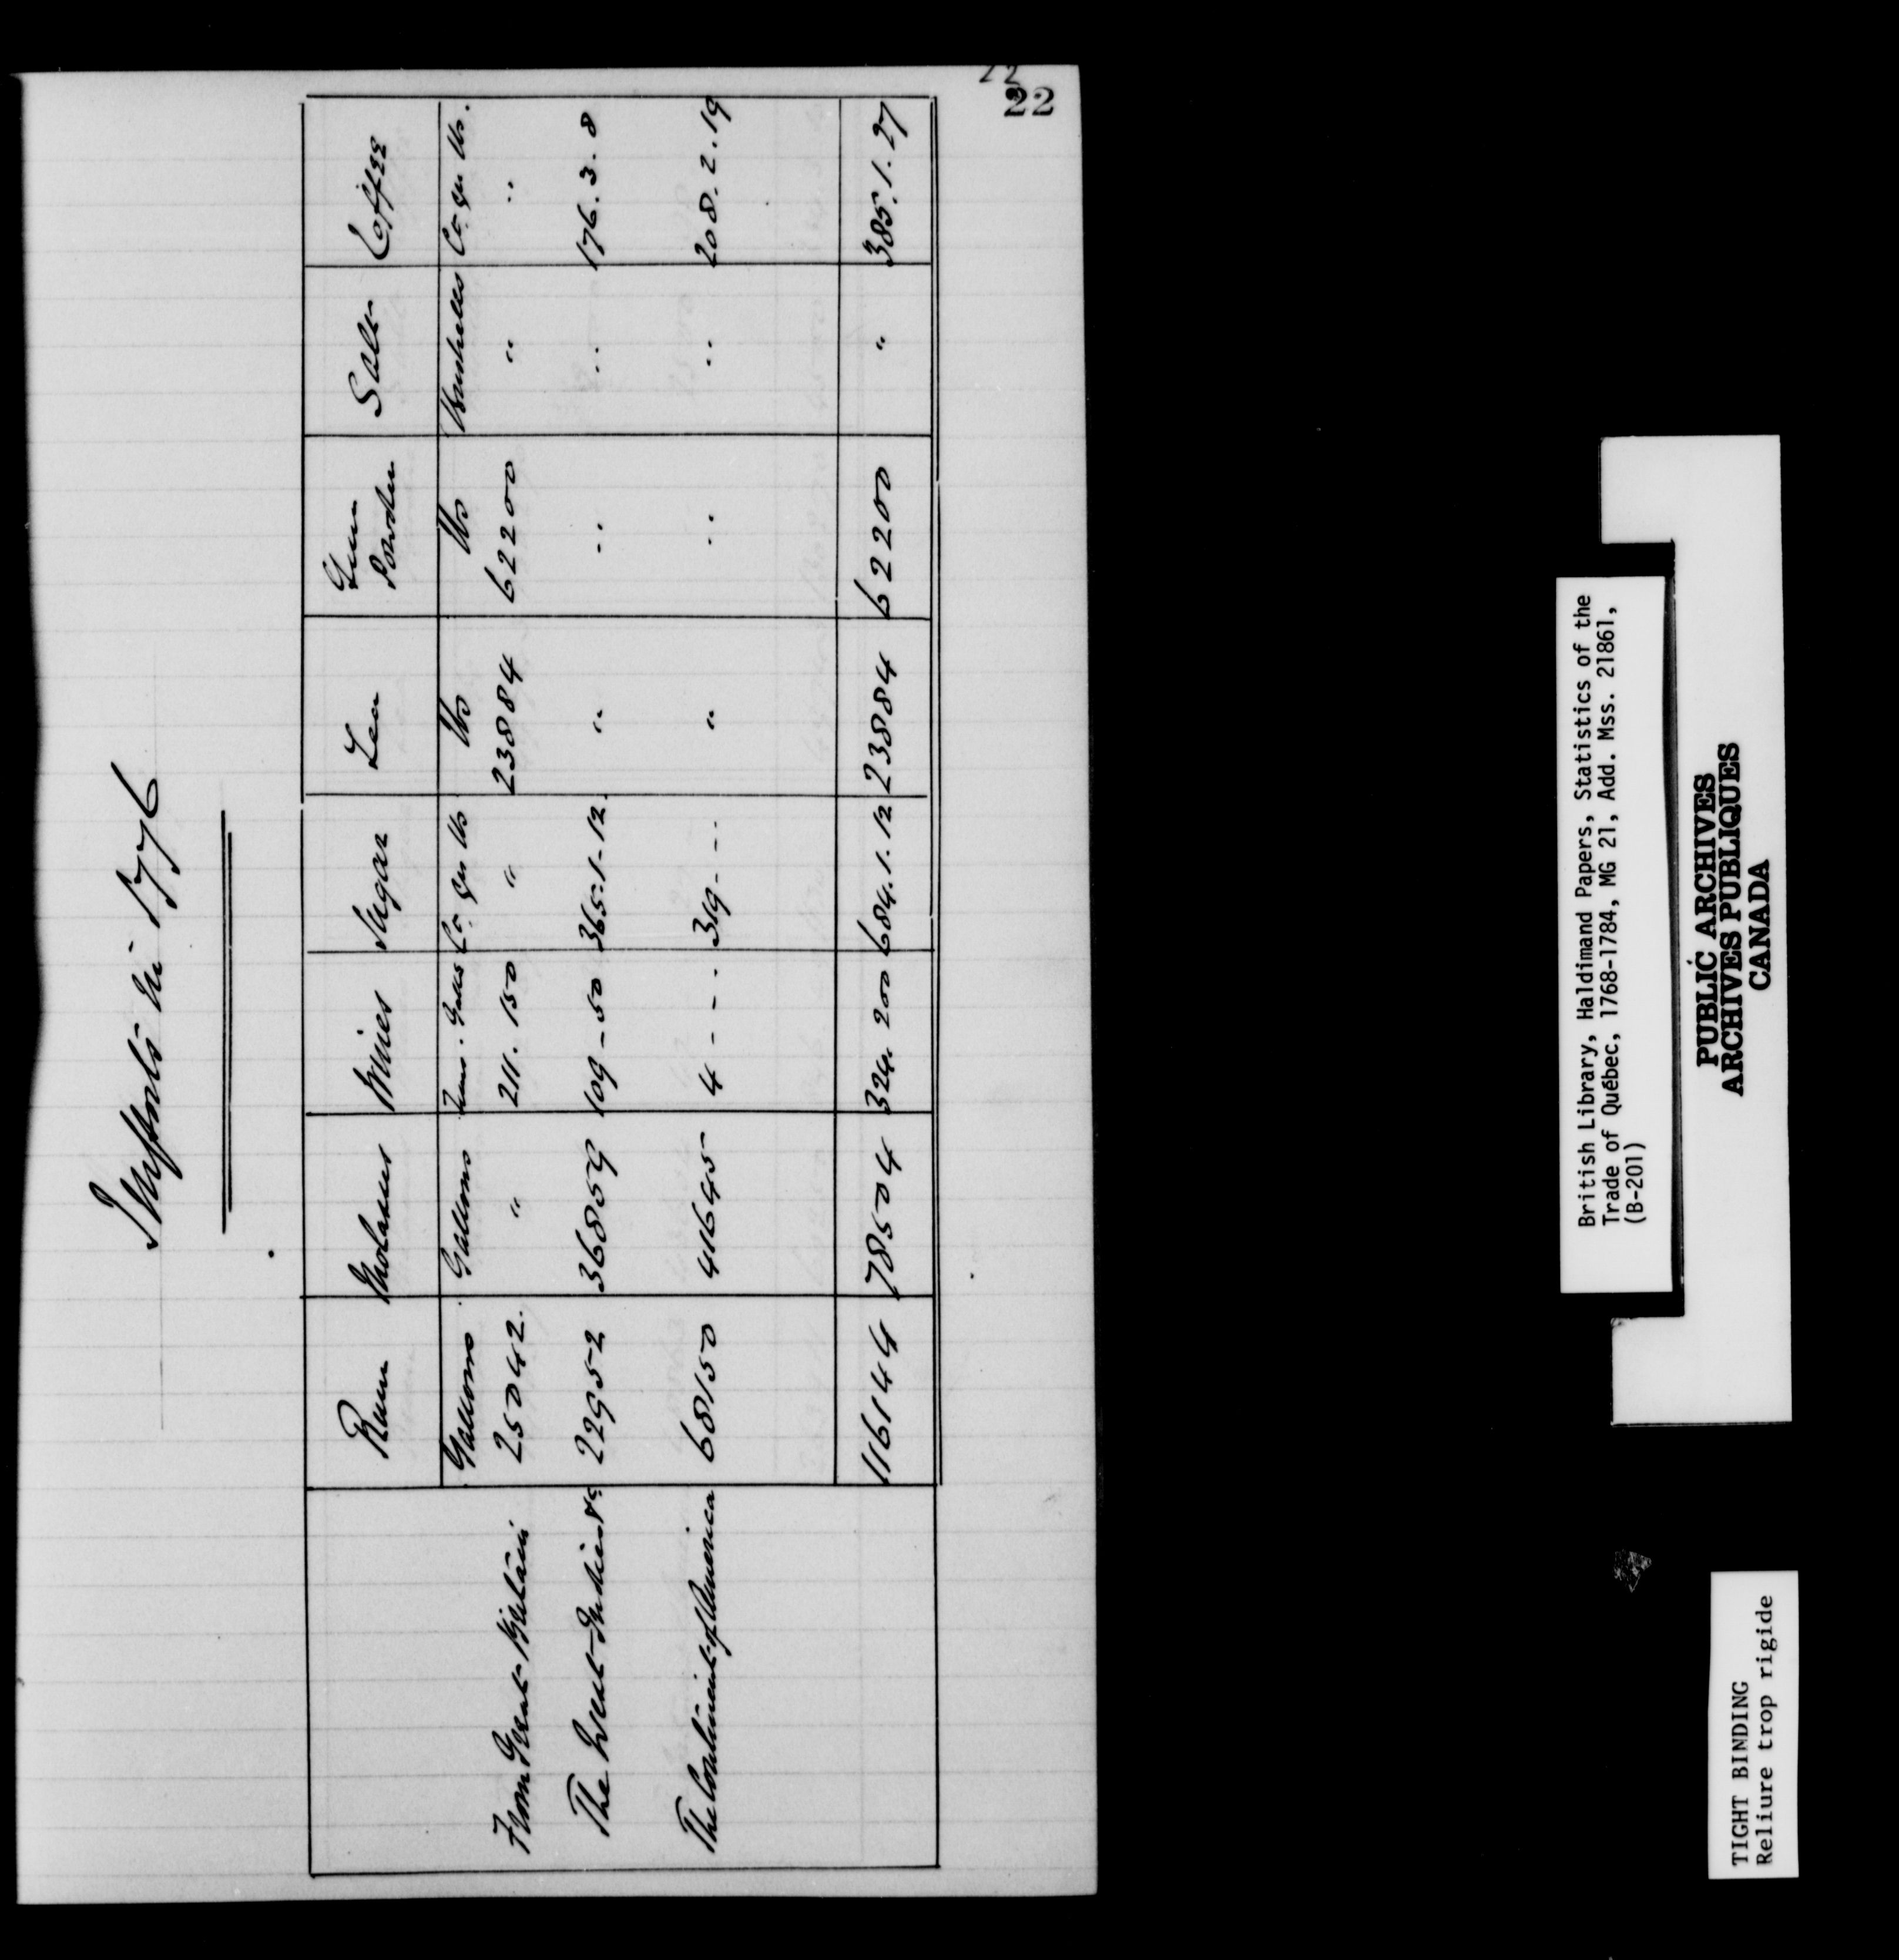 22
22
Imports in 1776
Rum Molasses Wines Sugar Tea Gun Powder Salt Coffee
Gallons Gallons Tuns. Galls Ct. qrs lbs lbs lbs Bushells Ct. qrs lbs.
From Great Britain 25042. " 211. 150 " 23884 62200 " "
The West Indies &c. 22952 36859 109-50 365-1-12. " " " 176.3.8
The Continent of America 68150 41645 4 - - - 319 - - - " " " 208.2.19
116144 78504 324. 200 684.1.12 23884 62200 " 385.1.27
British Library, Haldimand Papers, Statistics of the
Trade of Québec, 1768-1784, MG 21, Add. Mss. 21861,
(B-201)
PUBLIC ARCHIVES
ARCHIVES PUBLIQUES
CANADA
TIGHT BINDING
Reliure trop rigide